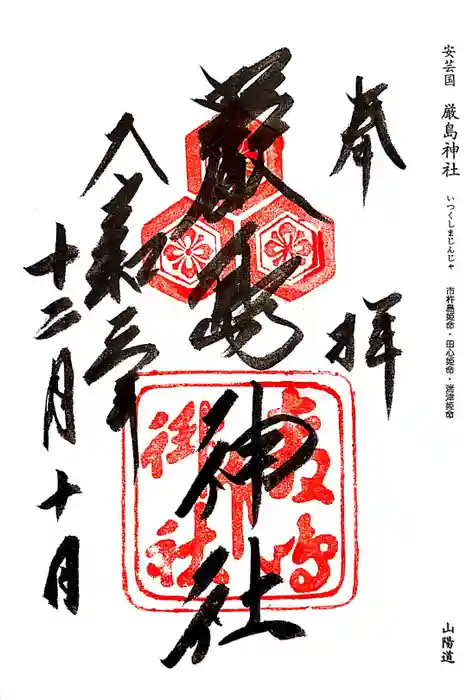 安芸国 厳島神社 いつくしまじんじゃ 市杵島姫命・田心姫命・湍津姫命 山陽道
奉拝
厳島神社
令和三年
十二月十日